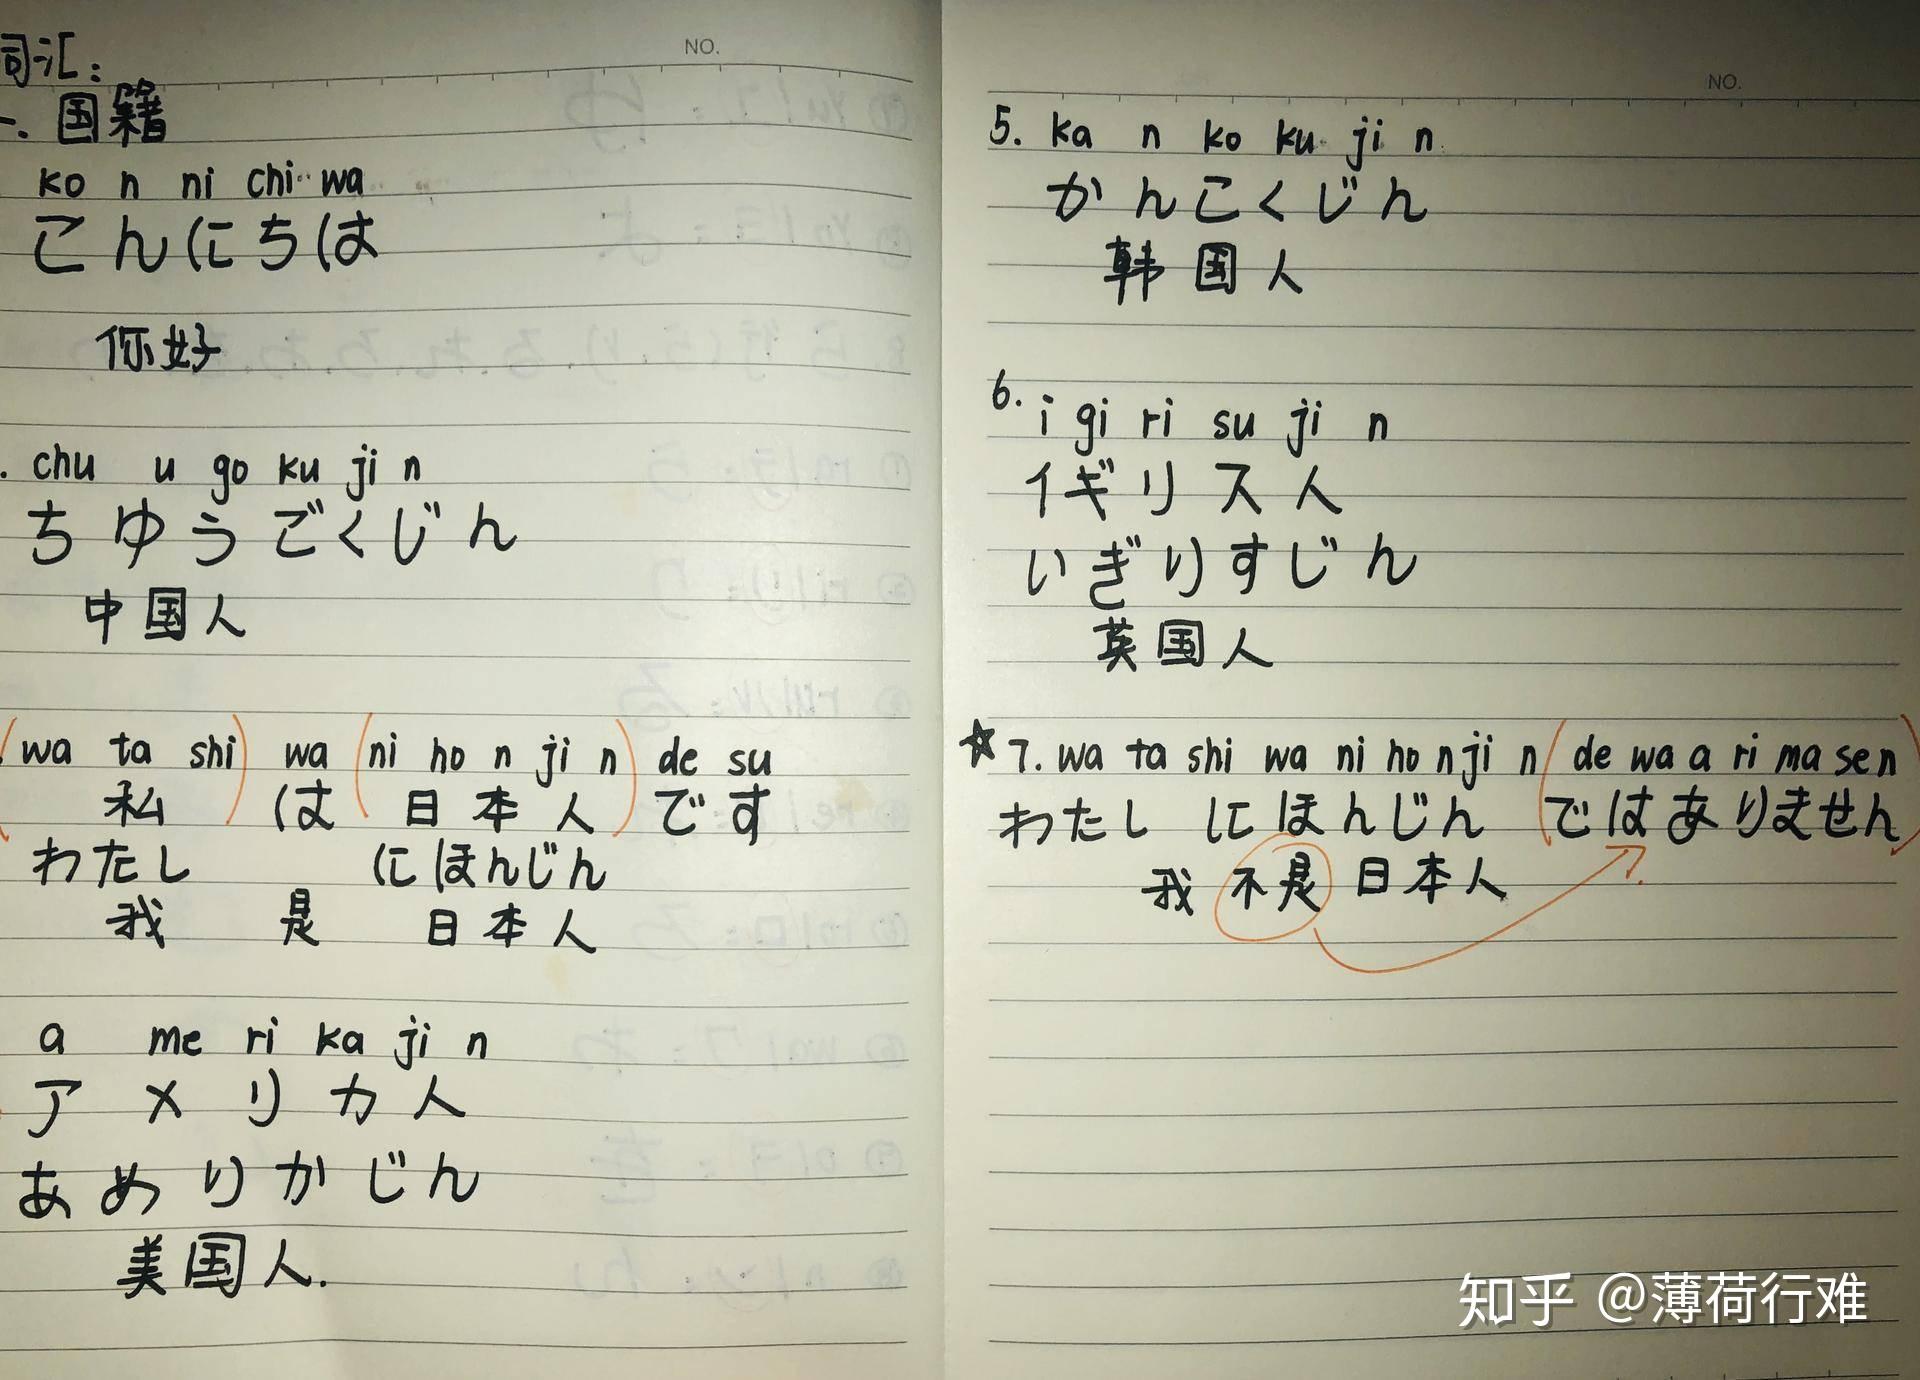 词汇:
一. 国籍
ko n ni chi wa
こんにちは
你好
. chu u go ku ji n
ちゆうごくじん
中国人
(wa ta shi) wa (ni ho n ji n) de su
私 は 日本人 です
わたし にほんじん
我 是 日本人
a me ri ka ji n
アメリカ人
あめりかじん
美国人.
NO.
NO.
5. ka n ko ku ji n
かんこくじん
韩国人
6. i gi ri su ji n
イギリス人
いぎりすじん
英国人
☆7. wa ta shi wa ni ho n ji n (de wa a ri ma se n)
わたし にほんじん (ではありません)
我 不是 日本人
知乎 @薄荷行难